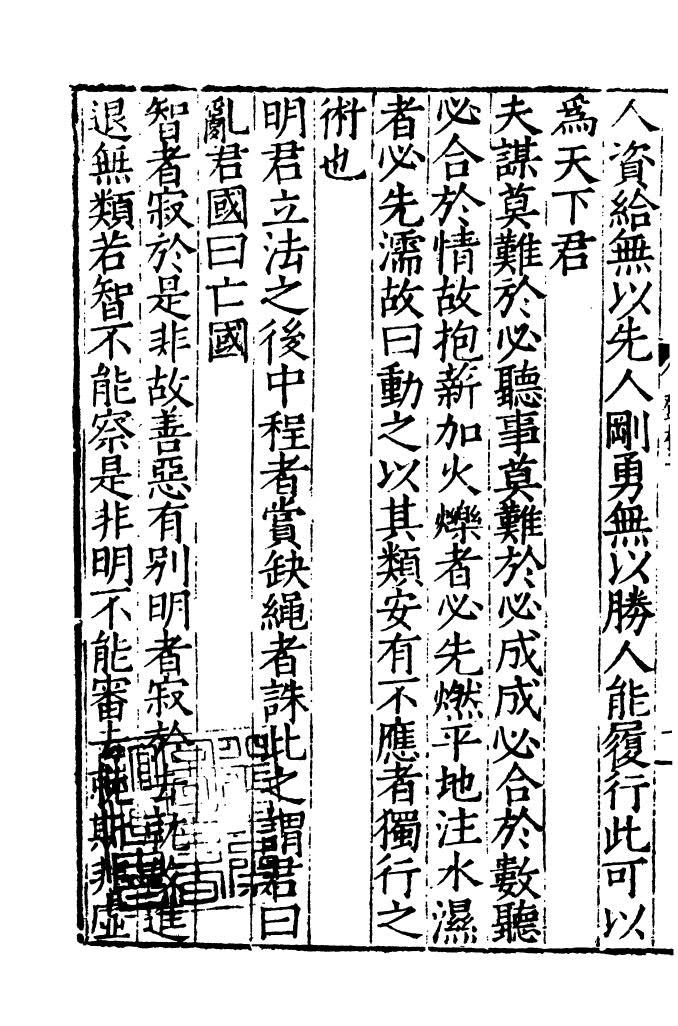 人資給無以先人剛勇無以勝人能履行此可以
為天下君
夫謀莫難於必聽事莫難於必成成必合於數聽
必合於情故抱薪加火爍者必先燃平地注水濕
者必先濡故曰動之以其類安有不應者獨行之
術也
明君立法之後中程者賞缺繩者誅此之謂君曰
亂君國曰亡國
智者寂於是非故善惡有别明者寂於去就故進
退無類若智不能察是非明不能審去就斯非虚